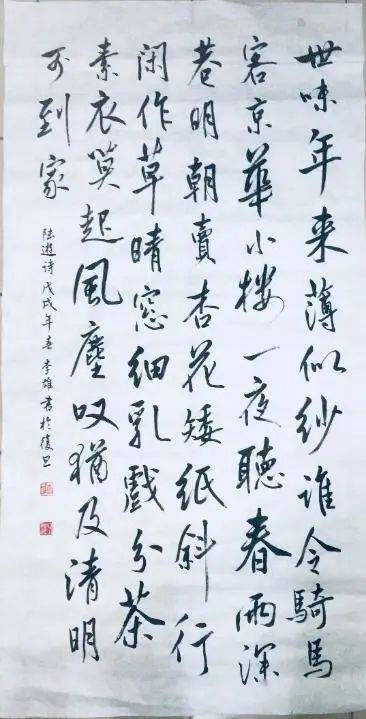 世味年来薄似纱谁令騎馬
客京華小楼一夜聽春雨深
巷明朝賣杏花矮紙斜行
闲作草晴窓细乳戲分茶
素衣莫起風塵叹猶及清明
可到家
陸遊诗戊戌年春李雄書於復旦